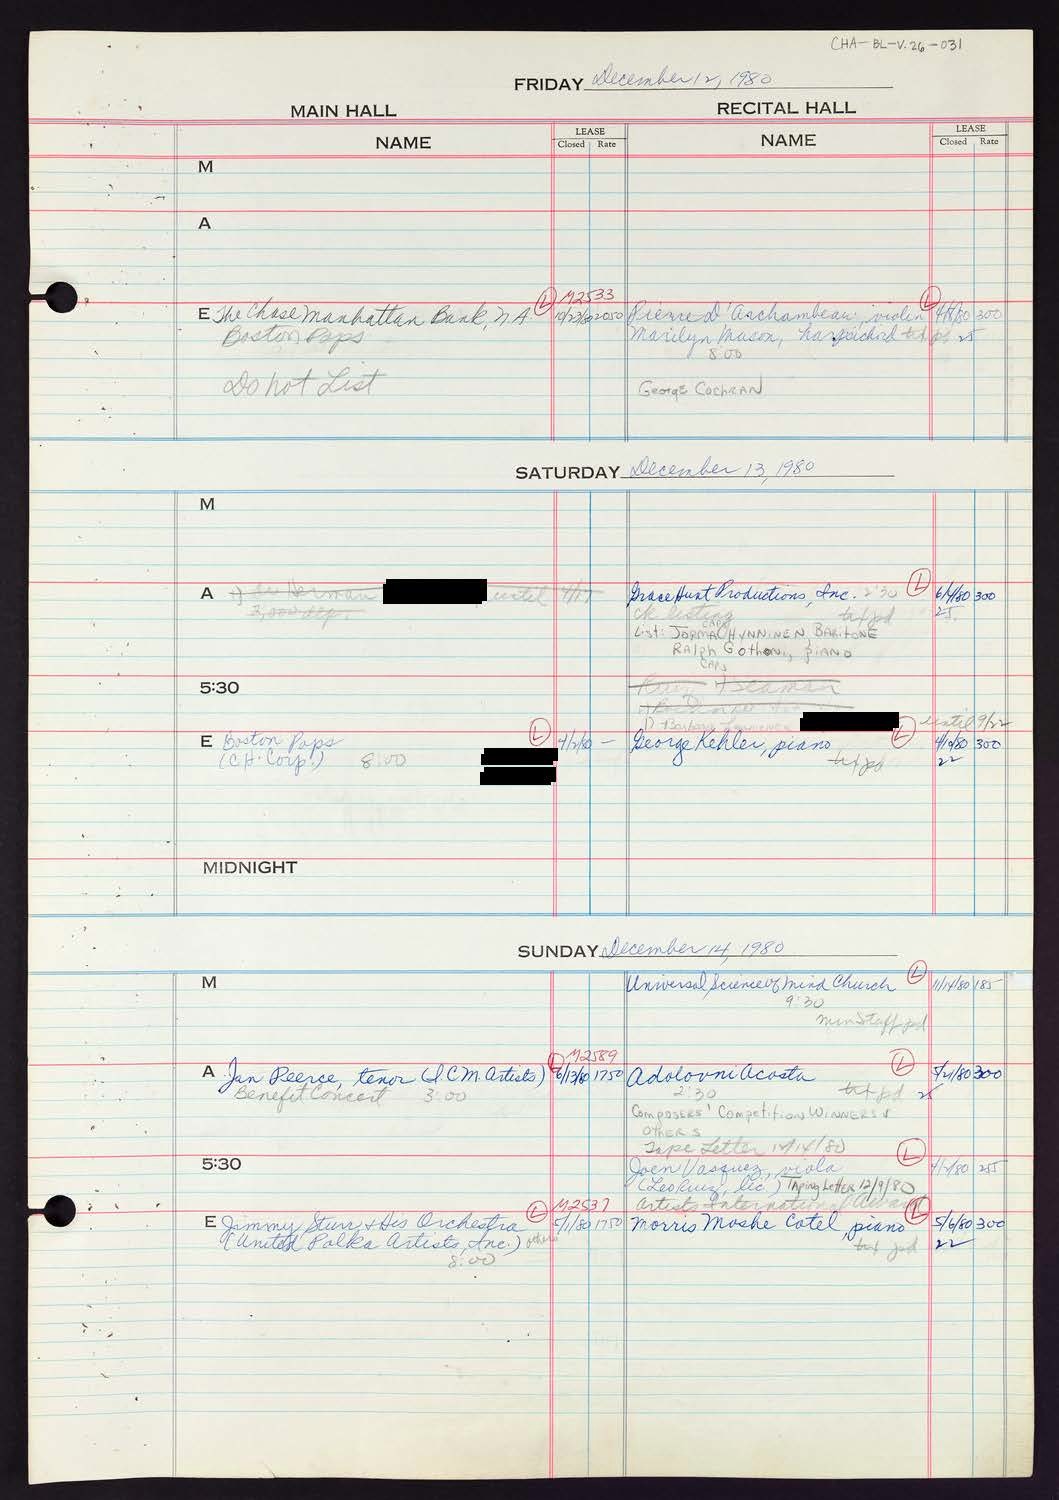 CHA-BL-V.26-031
FRIDAY December 12, 1980
MAIN HALL
RECITAL HALL
NAME
LEASE
Closed Rate
NAME
LEASE
Closed Rate
M
A
M2533
E The Chase Manhattan Bank, N.A. L 10/23/80 2050
Boston Pops
Do Not List
Pierre D'Archambeau, violin L 300
Marilyn Mason, harpsichord txt pd 25
8:00
George Cochran
SATURDAY December 13, 1980
M
A Herman until
3,000 dep.
Grace Hunt Productions, Inc. 2:30 L 300
ck listing txt pd 25
CAPS
List: JORMA HYNNINEN, BARITONE
RALPH GOTHONI, PIANO
CAPS
5:30
Seaman
until 9/22
E Boston Pops L —
(C.H. Corp.) 8:00
George Kehler, piano L 300
txt pd 22
MIDNIGHT
SUNDAY December 14, 1980
M
Universal Science of Mind Church L 11/14/80 185
9:30
min staff pd
M2589
A Jan Peerce, tenor (I.C.M. Artists) L 6/13/80 1750
Benefit Concert 3:00
Adolovni Acosta L 300
2:30 txt pd 25
Composers' Competition Winners &
others
Tape Letter
5:30
Joen Vasquez, viola L
Taping Letter 12/9/80
Artists International
M2537
E Jimmy Sturr & His Orchestra L 5/1/80 1750
(United Polka Artists, Inc.) others
8:00
Morris Moshe Cotel, piano L 5/6/80 300
txt pd 22